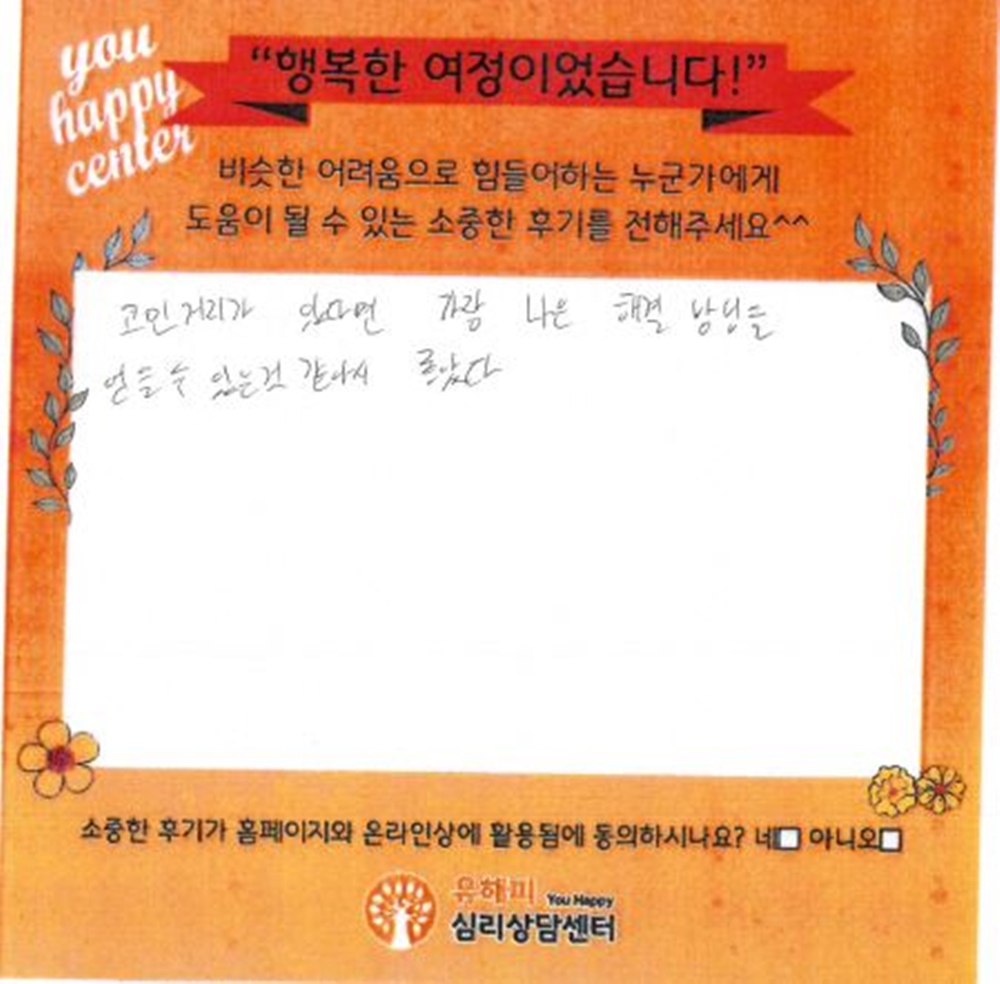 you
happy
center
“행복한 여정이었습니다!”
비슷한 어려움으로 힘들어하는 누군가에게
도움이 될 수 있는 소중한 후기를 전해주세요^^
고민거리가 있다면 가장 나은 해결 방법을
얻을수 있는것 같아서 좋았다
소중한 후기가 홈페이지와 온라인상에 활용됨에 동의하시나요? 네 아니오
유해피 You Happy
심리상담센터